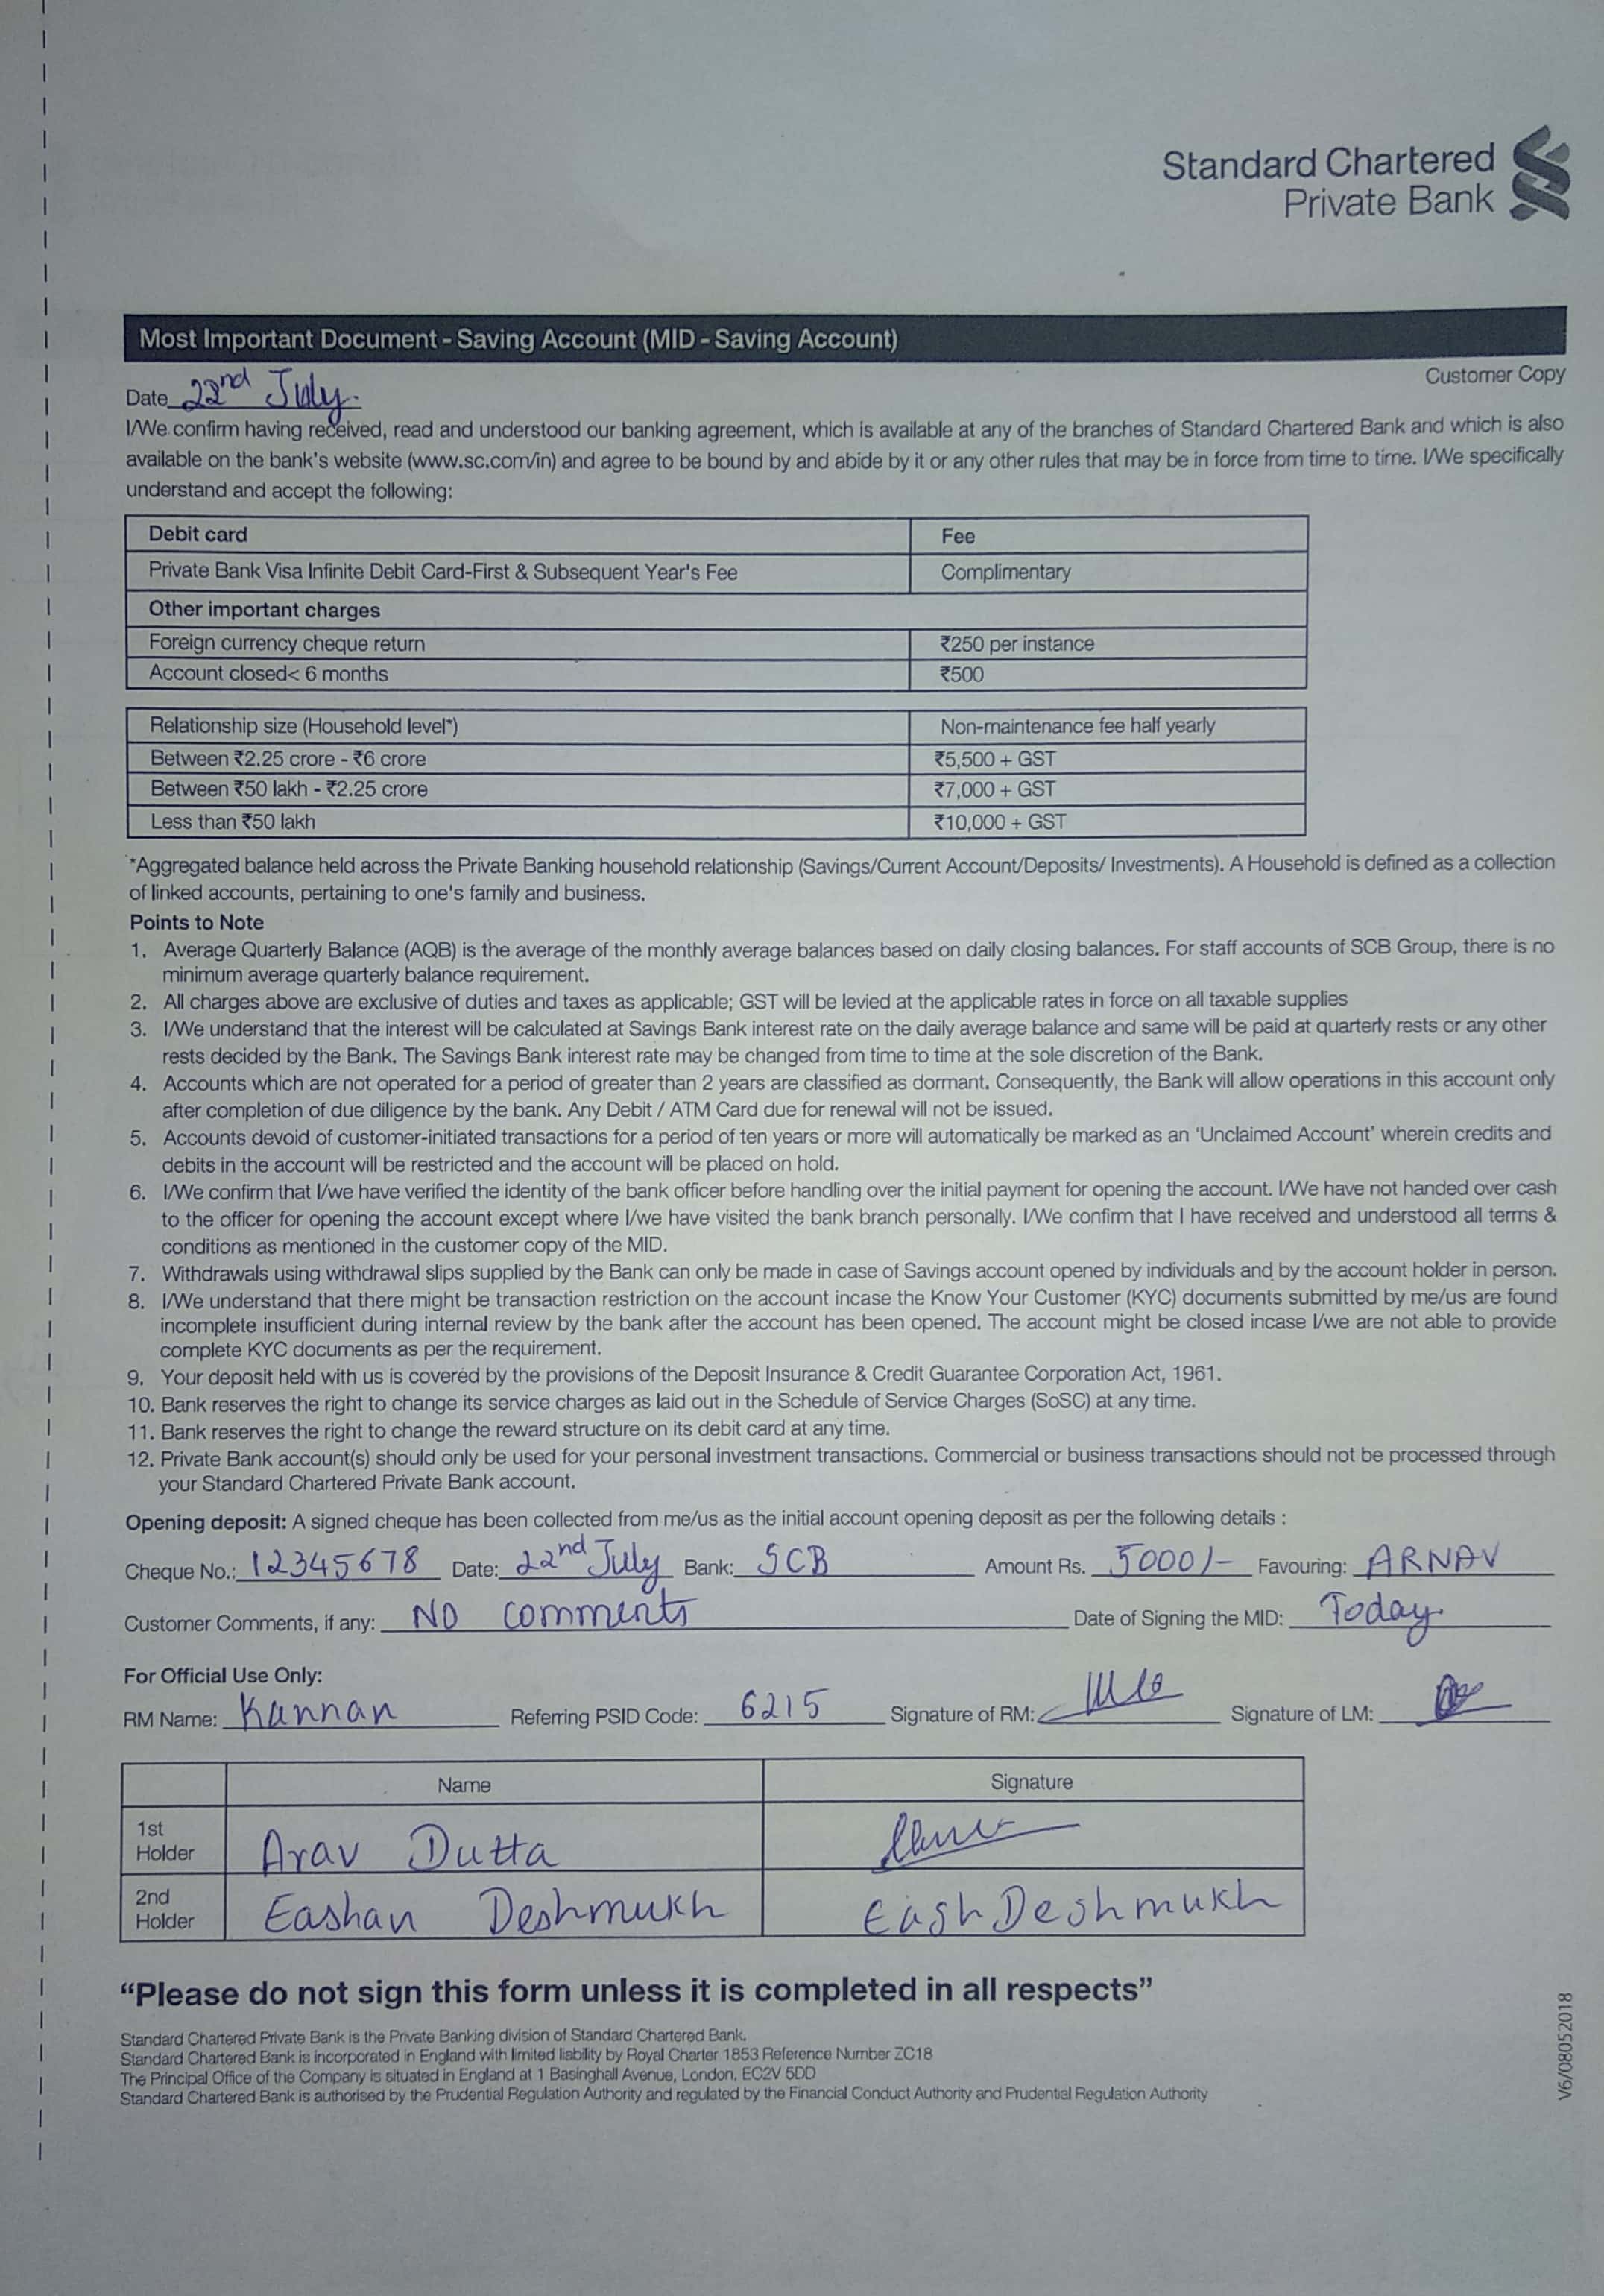 Standard Chartered
Private Bank
Most Important Document - Saving Account (MID - Saving Account)
Customer Copy
Date 22nd July.
I/We confirm having received, read and understood our banking agreement, which is available at any of the branches of Standard Chartered Bank and which is also
available on the bank's website (www.sc.com/in) and agree to be bound by and abide by it or any other rules that may be in force from time to time. I/We specifically
understand and accept the following:
Debit card Fee
Private Bank Visa Infinite Debit Card-First & Subsequent Year's Fee Complimentary
Other important charges
Foreign currency cheque return ₹250 per instance
Account closed< 6 months ₹500
Relationship size (Household level*) Non-maintenance fee half yearly
Between ₹2.25 crore - ₹6 crore ₹5,500 + GST
Between ₹50 lakh - ₹2.25 crore ₹7,000 + GST
Less than ₹50 lakh ₹10,000 + GST
*Aggregated balance held across the Private Banking household relationship (Savings/Current Account/Deposits/ Investments). A Household is defined as a collection
of linked accounts, pertaining to one's family and business.
Points to Note
1. Average Quarterly Balance (AQB) is the average of the monthly average balances based on daily closing balances. For staff accounts of SCB Group, there is no
minimum average quarterly balance requirement.
2. All charges above are exclusive of duties and taxes as applicable; GST will be levied at the applicable rates in force on all taxable supplies
3. I/We understand that the interest will be calculated at Savings Bank interest rate on the daily average balance and same will be paid at quarterly rests or any other
rests decided by the Bank. The Savings Bank interest rate may be changed from time to time at the sole discretion of the Bank.
4. Accounts which are not operated for a period of greater than 2 years are classified as dormant. Consequently, the Bank will allow operations in this account only
after completion of due diligence by the bank. Any Debit / ATM Card due for renewal will not be issued.
5. Accounts devoid of customer-initiated transactions for a period of ten years or more will automatically be marked as an 'Unclaimed Account' wherein credits and
debits in the account will be restricted and the account will be placed on hold.
6. I/We confirm that I/we have verified the identity of the bank officer before handling over the initial payment for opening the account. I/We have not handed over cash
to the officer for opening the account except where I/we have visited the bank branch personally. I/We confirm that I have received and understood all terms &
conditions as mentioned in the customer copy of the MID.
7. Withdrawals using withdrawal slips supplied by the Bank can only be made in case of Savings account opened by individuals and by the account holder in person.
8. I/We understand that there might be transaction restriction on the account incase the Know Your Customer (KYC) documents submitted by me/us are found
incomplete insufficient during internal review by the bank after the account has been opened. The account might be closed incase I/we are not able to provide
complete KYC documents as per the requirement.
9. Your deposit held with us is covered by the provisions of the Deposit Insurance & Credit Guarantee Corporation Act, 1961.
10. Bank reserves the right to change its service charges as laid out in the Schedule of Service Charges (SoSC) at any time.
11. Bank reserves the right to change the reward structure on its debit card at any time.
12. Private Bank account(s) should only be used for your personal investment transactions. Commercial or business transactions should not be processed through
your Standard Chartered Private Bank account.
Opening deposit: A signed cheque has been collected from me/us as the initial account opening deposit as per the following details :
Cheque No.: 12345678 Date: 22nd July Bank: SCB Amount Rs. 5000/- Favouring: ARNAV
Customer Comments, if any: NO comments Date of Signing the MID: Today
For Official Use Only:
RM Name: Kannan Referring PSID Code: 6215 Signature of RM: Signature of LM:
Name Signature
1st
Holder Arav Dutta
2nd
Holder Eashan Deshmukh Eash Deshmukh
"Please do not sign this form unless it is completed in all respects"
Standard Chartered Private Bank is the Private Banking division of Standard Chartered Bank.
Standard Chartered Bank is incorporated in England with limited liability by Royal Charter 1853 Reference Number ZC18
The Principal Office of the Company is situated in England at 1 Basinghall Avenue, London, EC2V 5DD
Standard Chartered Bank is authorised by the Prudential Regulation Authority and regulated by the Financial Conduct Authority and Prudential Regulation Authority
V6/08052018